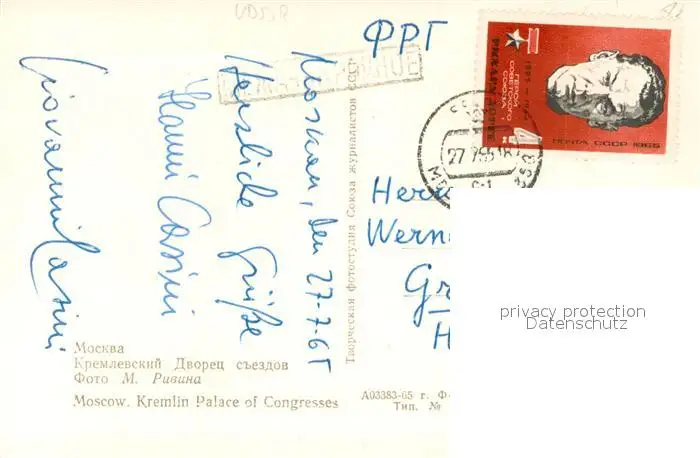 UDSSR
ФРГ
МЕЖДУНАРОДНОЕ
Moskau, den 27-7-65
Herzliche Grüße
Hanni Casini
Giovanni Casini
Творческая фотостудия Союза журналистов СССР
Herr
Wern
Gr
H
ГЕРОЙ
СОВЕТСКОГО
СОЮЗА
РИХАРД ЗОРГЕ
4
ПОЧТА СССР 1965
27 7 65 18
privacy protection
Datenschutz
Москва
Кремлевский Дворец съездов
Фото М. Ривина
Moscow. Kremlin Palace of Congresses
А03383-65 г. Ф
Тип. №